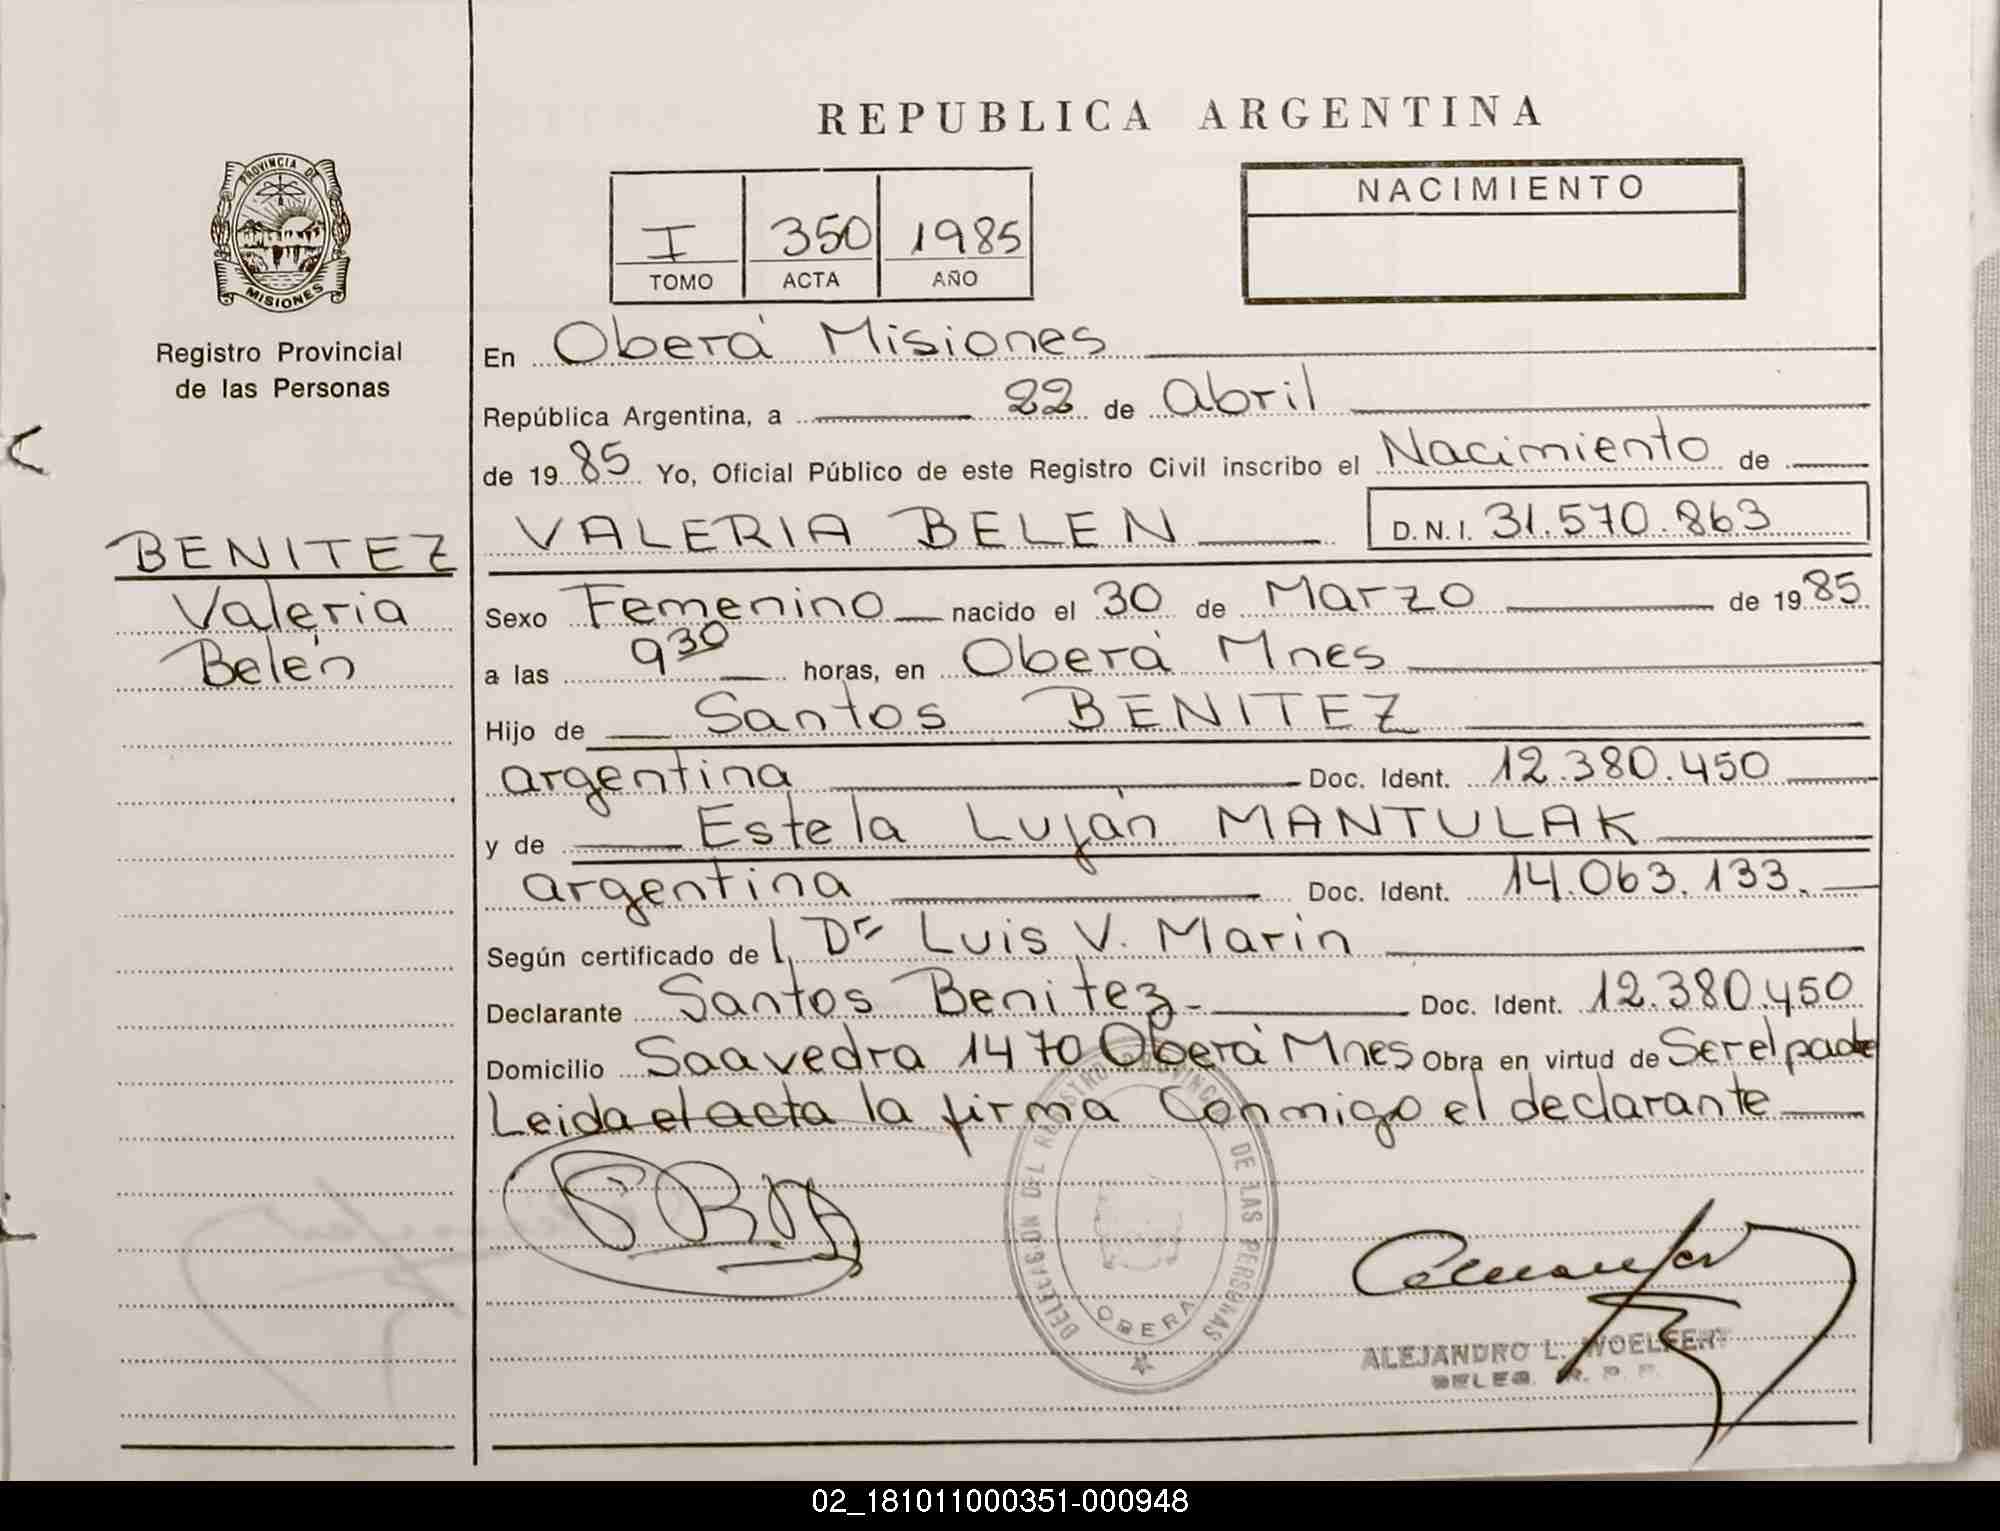 REPUBLICA ARGENTINA
PROVINCIA DE
MISIONES
Registro Provincial
de las Personas
I 350 1985
TOMO ACTA AÑO
NACIMIENTO
En Oberá Misiones
República Argentina, a 22 de abril
de 1985 Yo, Oficial Público de este Registro Civil inscribo el Nacimiento de
BENITEZ
Valeria
Belén
VALERIA BELEN D.N.I. 31.570.863
Sexo Femenino nacido el 30 de Marzo de 1985
a las 9 30 horas, en Oberá Mnes
Hijo de Santos BENITEZ
argentina Doc. Ident. 12.380.450
y de Estela Luján MANTULAK
argentina Doc. Ident. 14.063.133.
Según certificado de Dr Luis V. Marin
Declarante Santos Benitez Doc. Ident. 12.380.450
Domicilio Saavedra 1470 Oberá Mnes Obra en virtud de Ser el padre
Leida el acta la firma Conmigo el declarante
DELEGACION DEL REGISTRO PROVINCIAL DE LAS PERSONAS
OBERA
ALEJANDRO L. WOELFERT
DELEG. R. P. P.
02_181011000351-000948